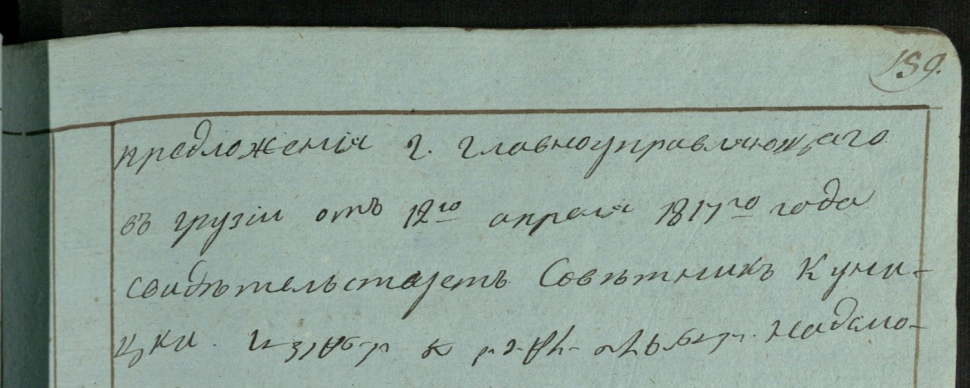 159.
предложенія г. главноуправляющаго
въ грузіи отъ 12го апреля 1817го года
свидѣтельствуетъ Совѣтникъ Куни-
цки.